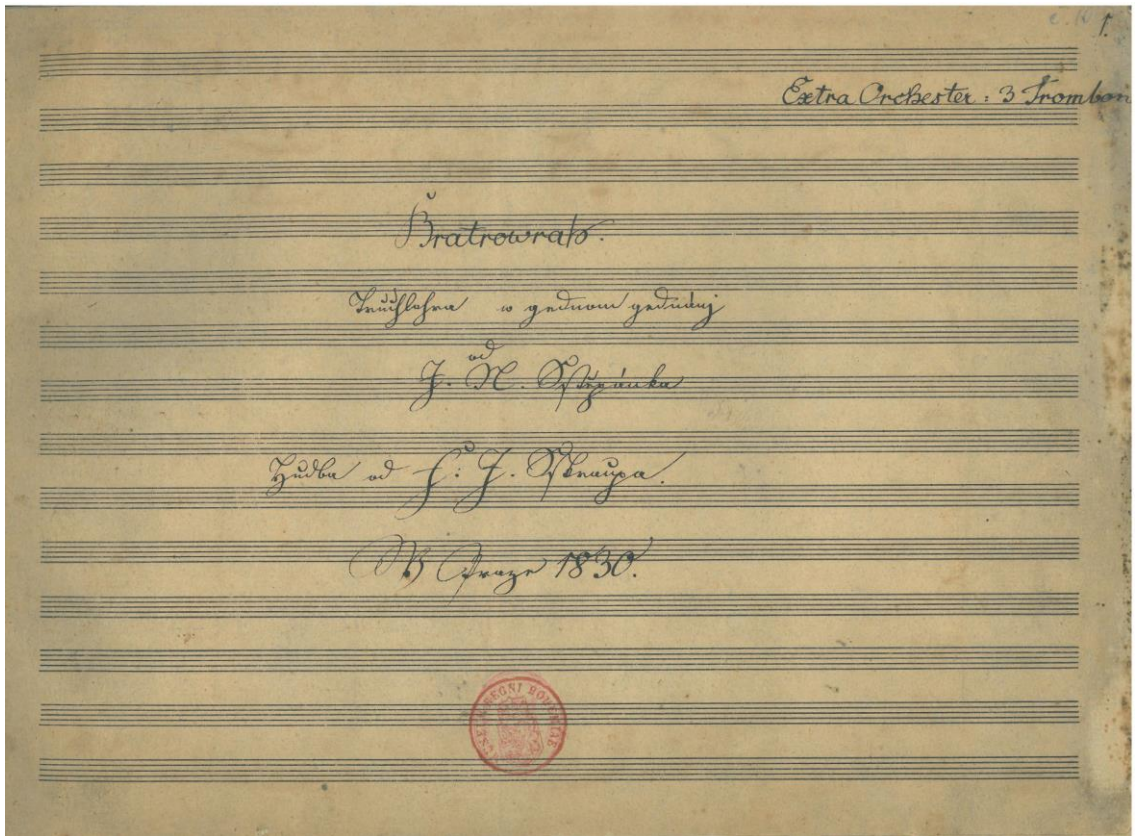 1.
Extra Orchester : 3 Trombon
Bratrowrah.
Truchlohra w gednom gednánj
od
J. N. Sstěpánka
Hudba od F. J. Sskraupa.
W Praze 1830.
REGNI BOHEMIAE